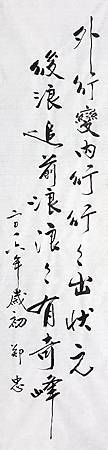 外行變内行行々出状元
後浪追前浪浪々有奇峰
二〇一六年歲初 鄭忠